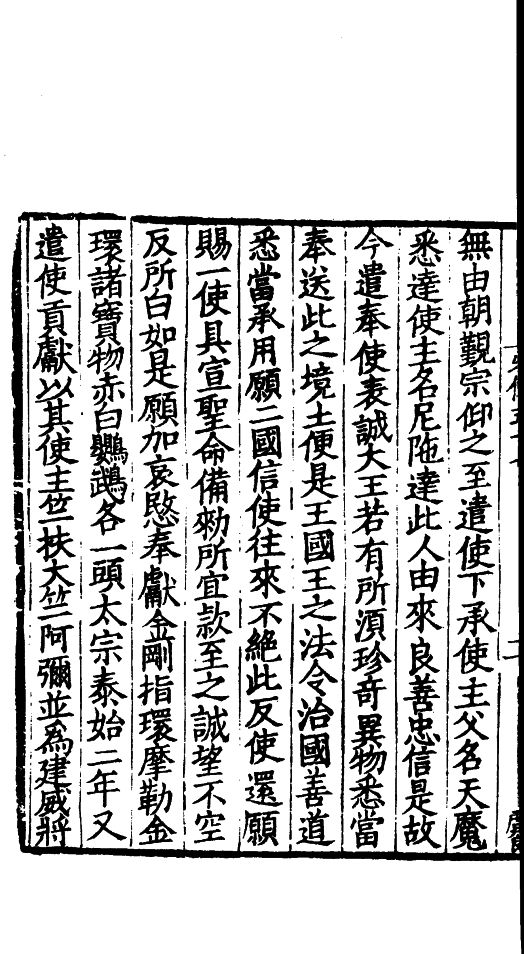 無由朝覲宗仰之至遣使下承使主父名天魔
悉達使主名尼陁達此人由來良善忠信是故
今遣奉使表誠大王若有所湏珍竒異物悉當
奉送此之境土便是王國王之法令治國善道
悉當承用願二國信使往來不絶此反使還願
賜一使具宣聖命備勑所宜款至之誠望不空
反所白如是願加哀愍奉獻金剛指環摩勒金
環諸寳物赤白鸚鵡各一頭太宗泰始二年又
遣使貢獻以其使主竺扶大竺阿彌並爲建威將